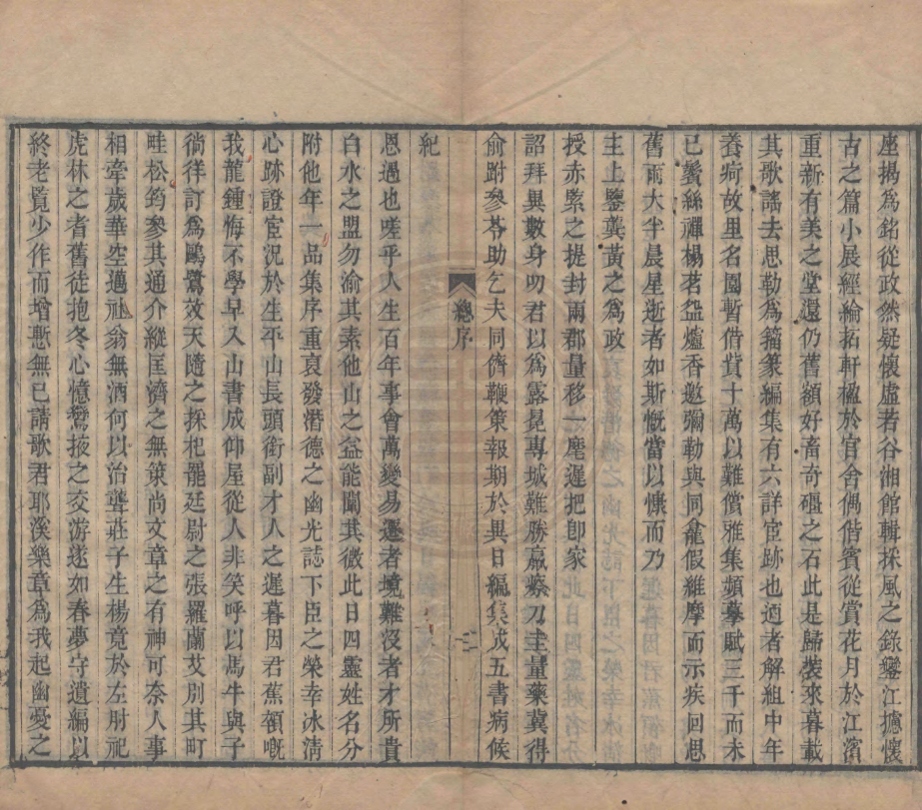 座揭爲銘從政然疑懷虛若谷湘館輯採風之錄鑾江攄懷
古之篇小展經綸拓軒楹於官舍偶偕賓從賞花月於江濱
重新有美之堂還仍舊額好畜奇礓之石此是歸裝來暮載
其歌謠去思勒爲籀篆編集有六詳宦跡也迺者解組中年
養疴故里名園暫借貲十萬以難償雅集頻摹賦三千而未
已鬢絲禪榻茗盌爐香邀彌勒與同龕假維摩而示疾回思
舊雨大半晨星逝者如斯慨當以慷而乃
主上鑒龔黃之爲政
授赤緊之提封兩郡量移一麾遲把卽家
詔拜異數身叨君以爲露冕專城難勝羸瘵刀圭量藥冀得
俞跗參苓助乞夫同儕鞭策報期於異日編集成五書病候
紀
總序
三
恩遇也嗟乎人生百年事會萬變易遷者境難沒者才所貴
白水之盟勿渝其素他山之益能闡其微此日四靈姓名分
附他年一品集序重哀發潛德之幽光誌下臣之榮幸冰淸
心跡證宦況於生平山長頭銜副才人之遲暮因君蕉萃嘅
我龍鍾悔不學早入山書成仰屋從人非笑呼以馬牛與子
徜徉訂爲鷗鷺效天隨之採杞罷廷尉之張羅蘭艾別其町
畦松筠參其通介縱匡濟之無策尚文章之有神可奈人事
相牽歲華空邁社翁無酒何以治聾莊子生楊竟於左肘祀
虎林之耆舊徒抱冬心憶鸞掖之交游遂如春夢守遺編以
終老覽少作而增慙無已請歌君耶溪樂章爲我起幽憂之